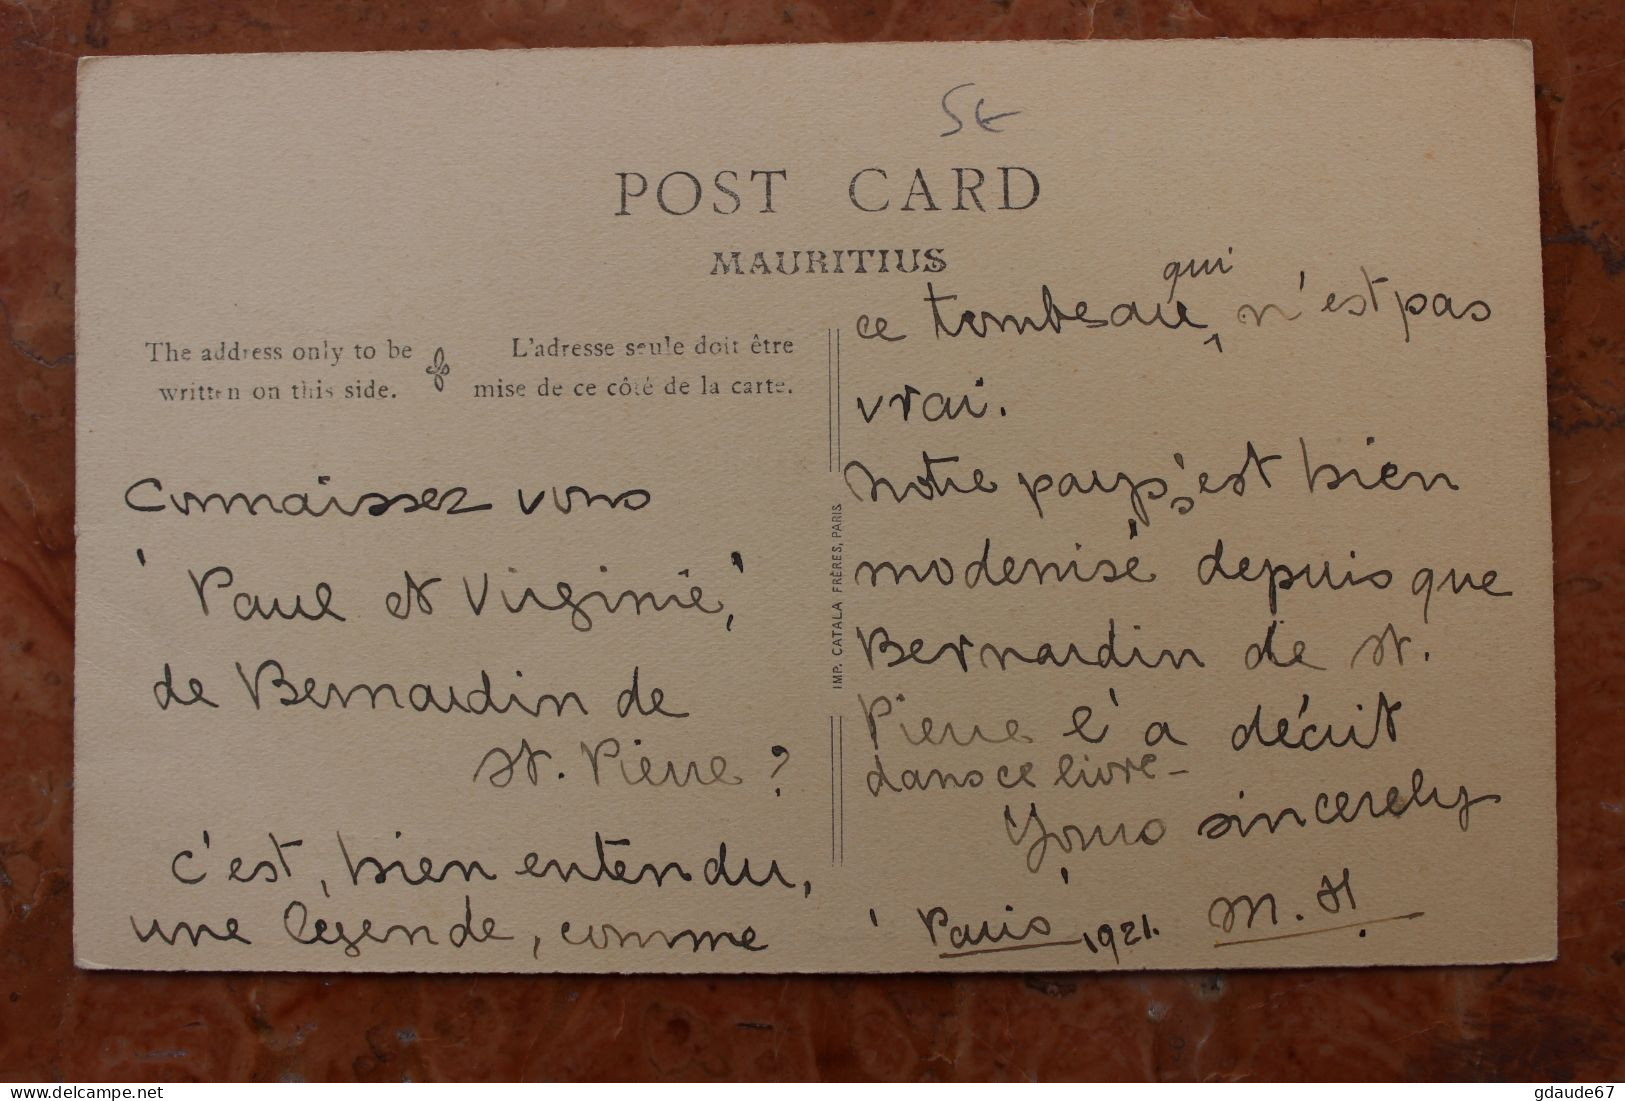 5€
POST CARD
MAURITIUS
The address only to be
written on this side.
L'adresse seule doit être
mise de ce côté de la carte.
IMP. CATALA FRÈRES, PARIS
Connaissez vous
"Paul et Virginie,"
de Bernardin de
St. Pierre ?
C'est, bien entendu,
une légende, comme
qui
ce tombeau ^ n'est pas
vrai.
Notre pays s'est bien
modenisé depuis que
Bernardin de St.
Pierre l'a décrit
dans ce livre -
Yours sincerely
M. H.
'Paris' 1921.
gdaude67